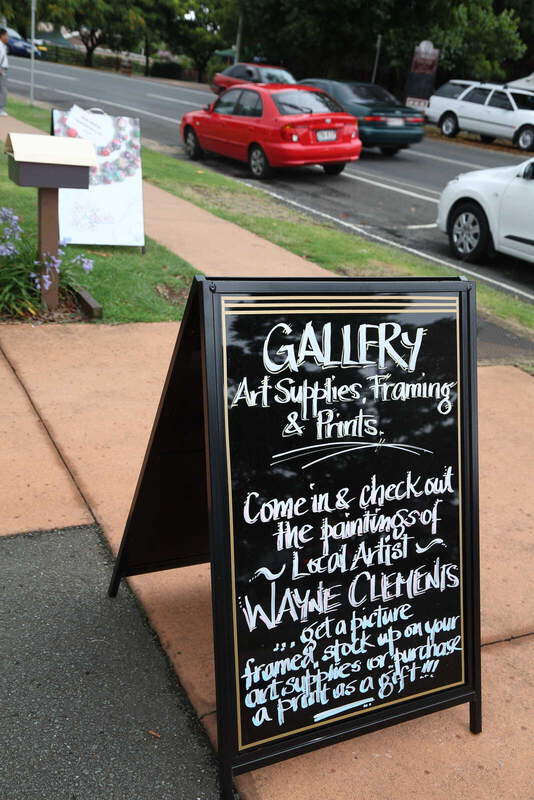 GALLERY
Art Supplies, Framing
& Prints.
Come in & check out
the paintings of
~ Local Artist ~
WAYNE CLEMENTS
... get a picture
framed, stock up on your
art supplies or purchase
a print as a gift!!!